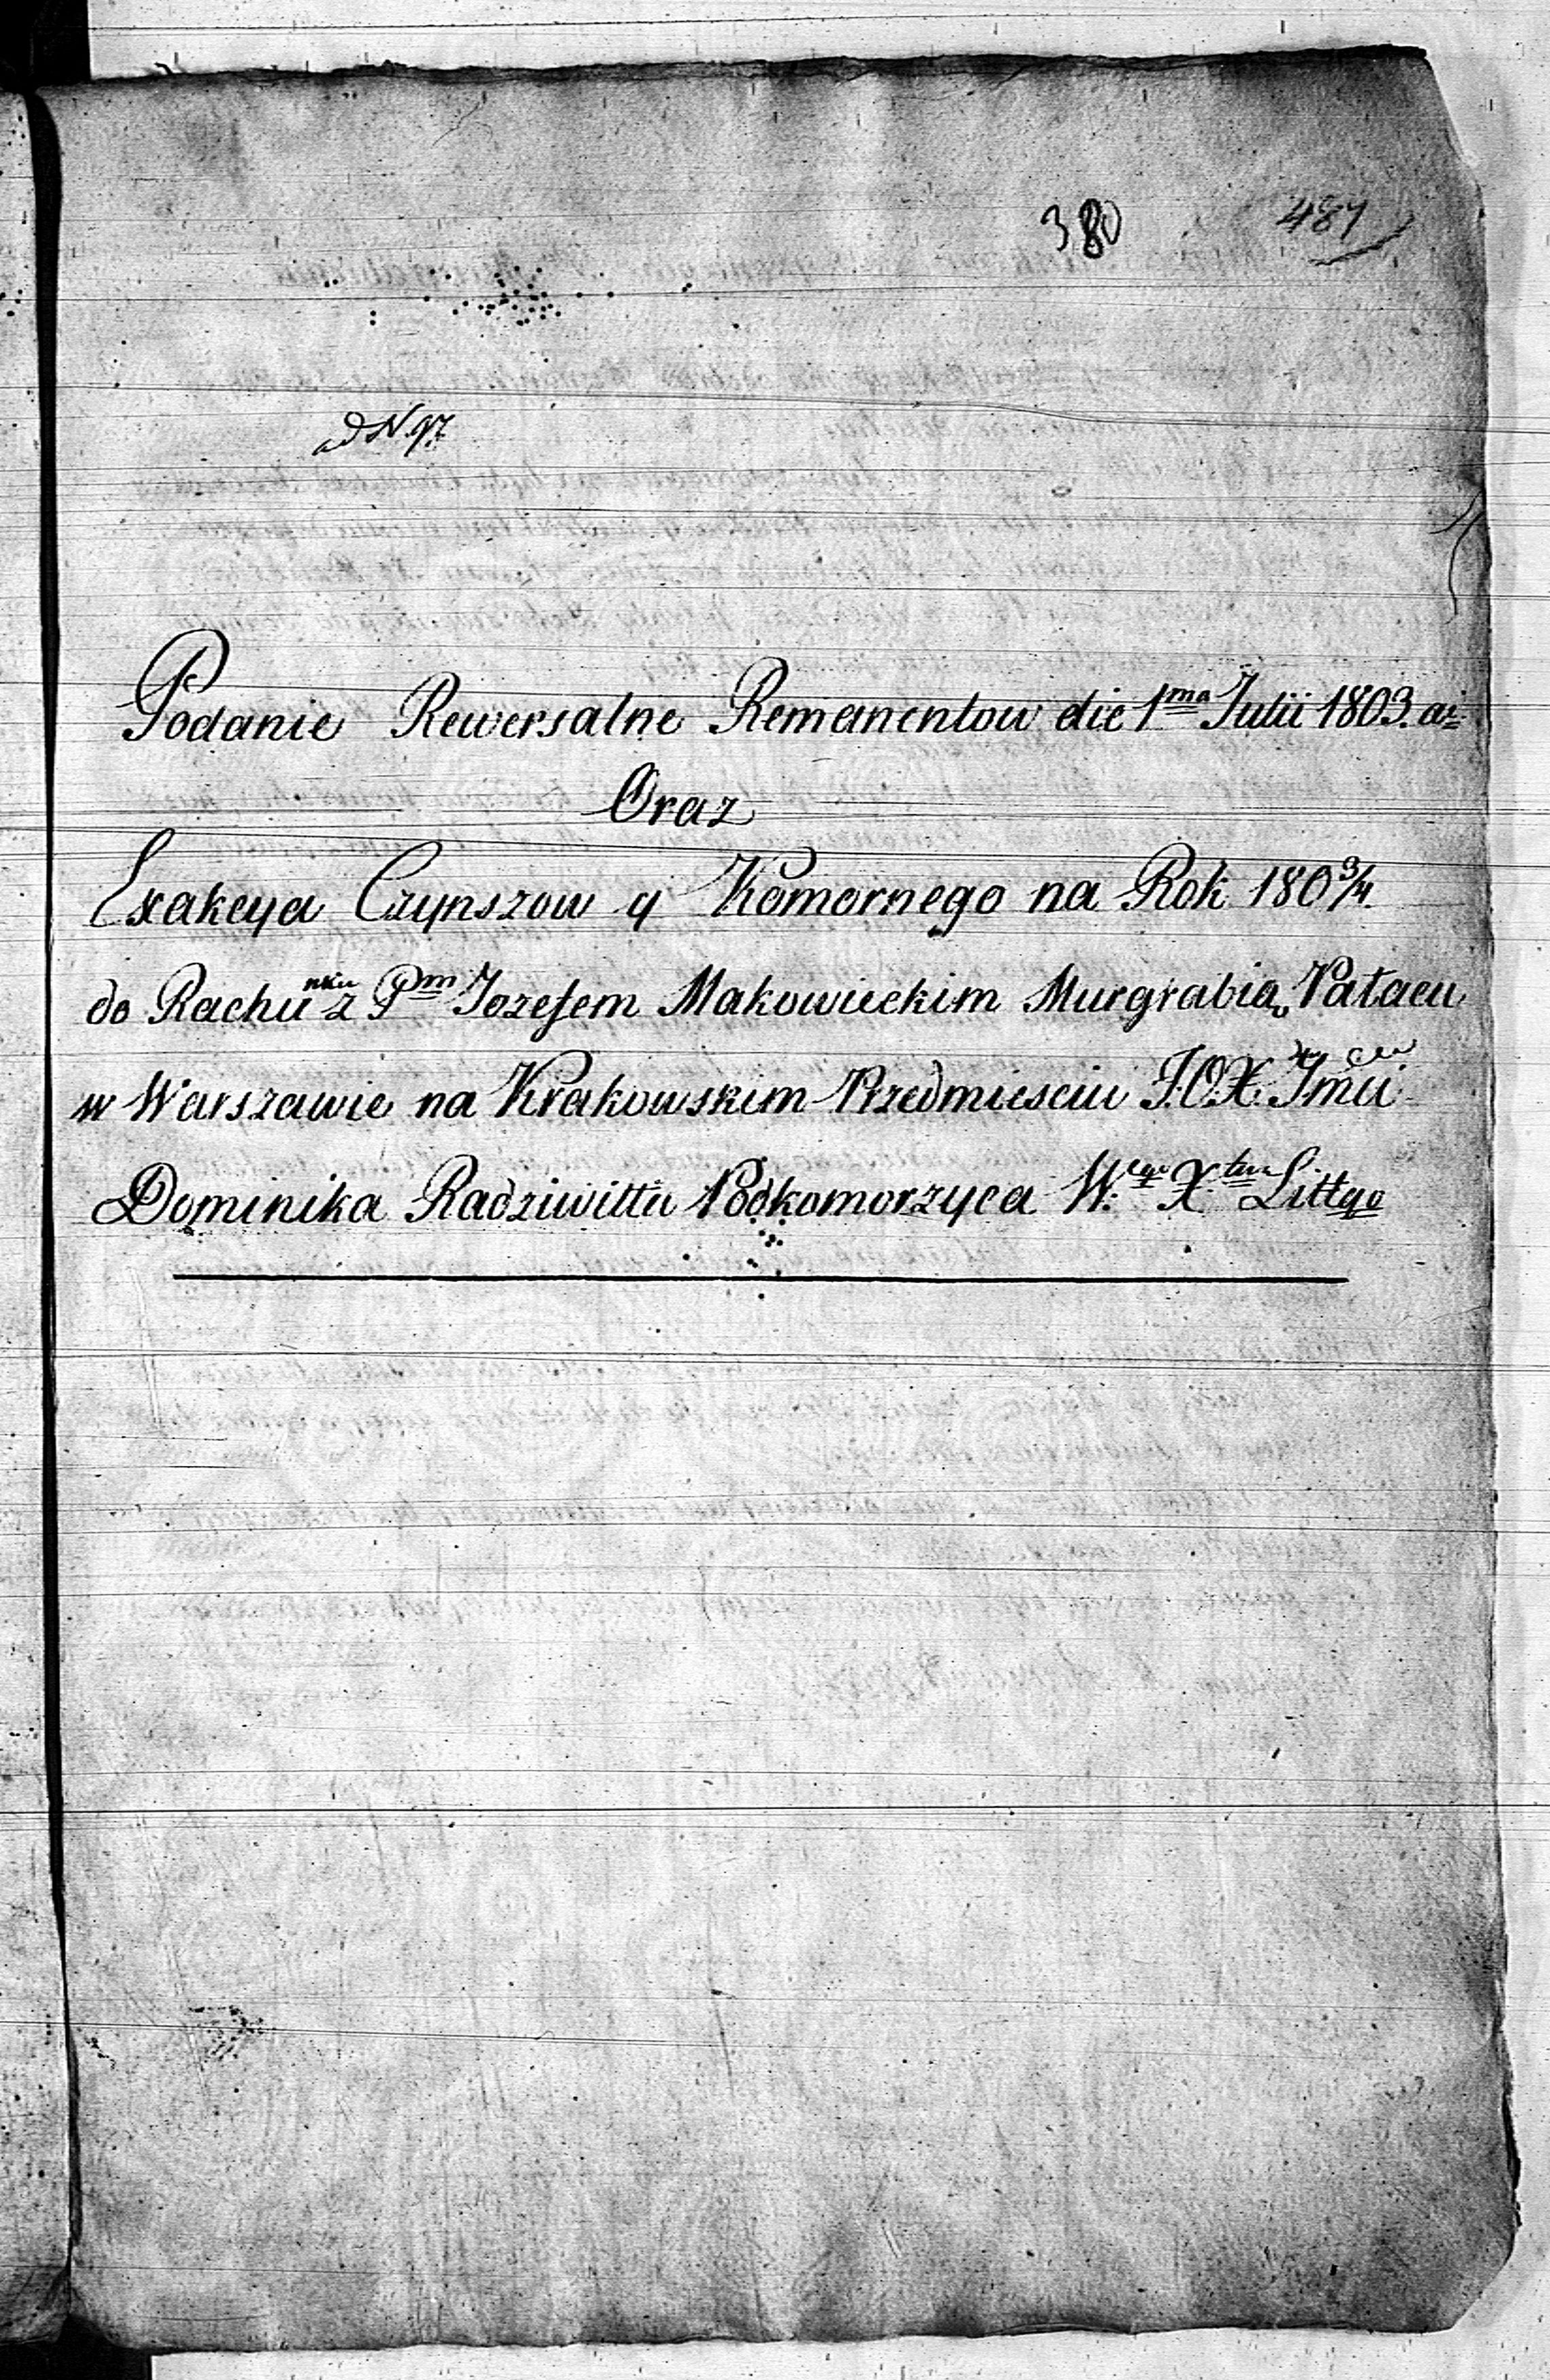 380 487
ad N. 97.
Podanie Rewersalne Remanentow die 1ma Julii 1803. ai.
Oraz
Exakcya Czynszow y Komornego na Rok 180 3/4.
do Rachunku z Pm Jozefem Makowieckim Murgrabią Pałacu
w Warszawie na Krakowskim Przedmiesciu J.O.X. Jmci
Dominika Radziwiłła Podkomorzyca W. X. Littgo